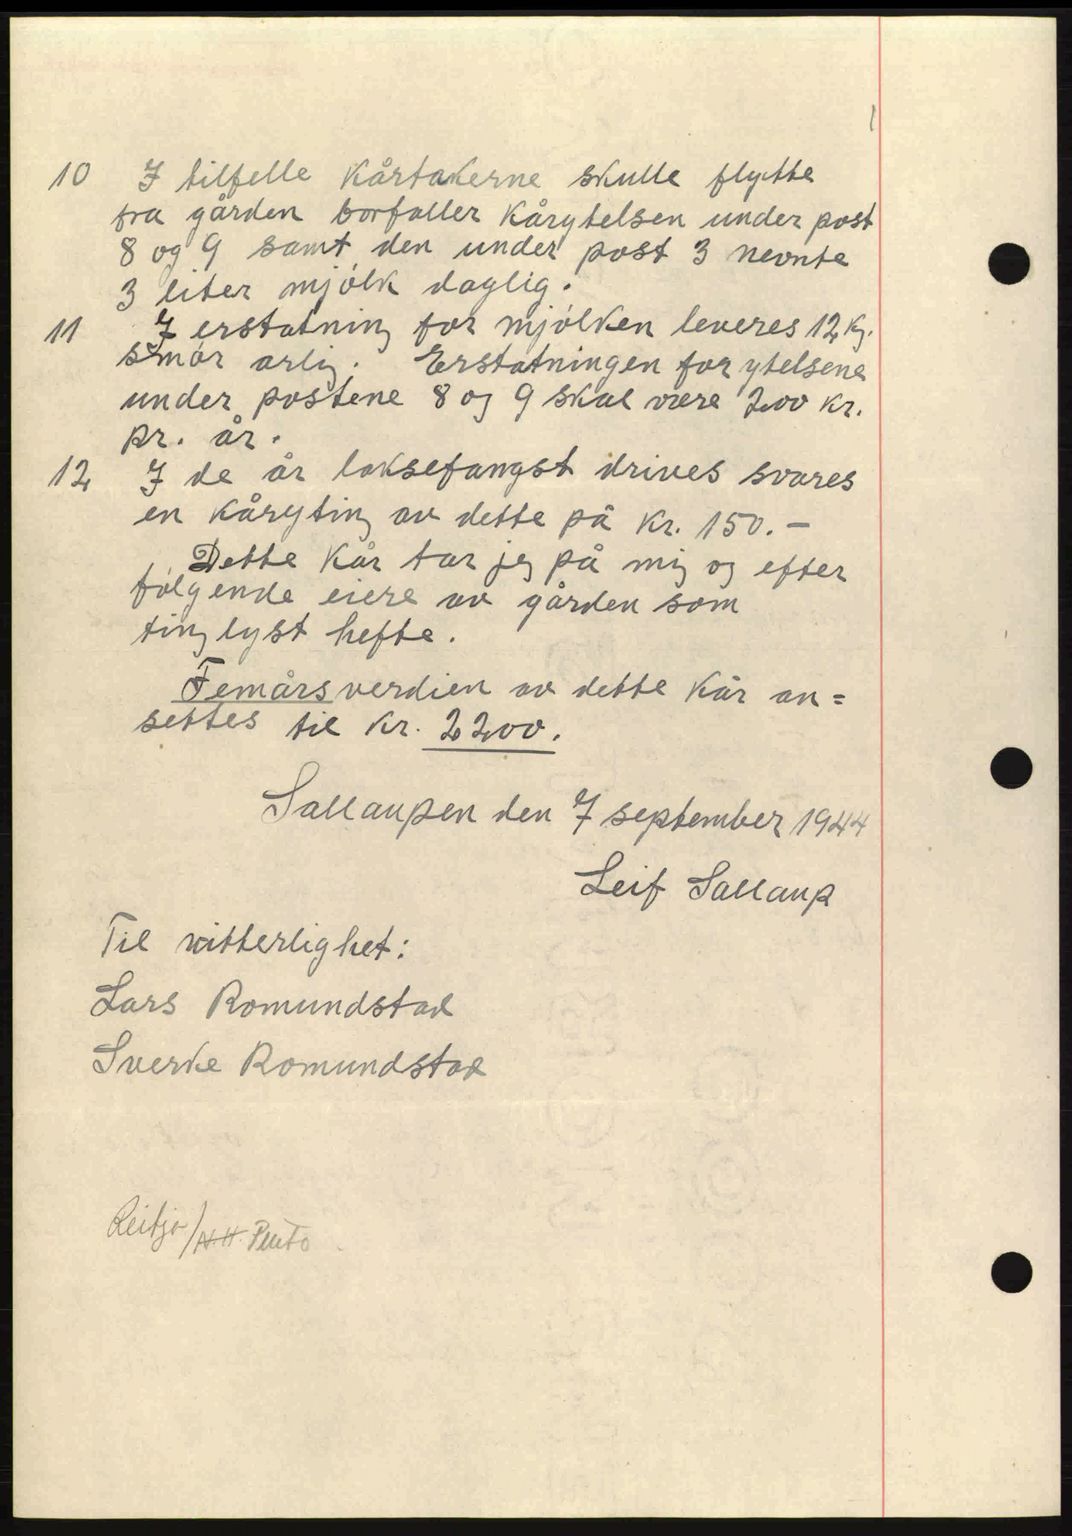 10 I tilfelle kårtakerne skulle flytte
fra gården borfaller kårytelsen under post
8 og 9 samt den under post 3 nevnte
3 liter mjölk daglig.
11 I erstatning for mjölken leveres 12 kg.
smör årlig. Erstatningen for ytelsene
under postene 8 og 9 skal være 200 kr.
pr. år.
12 I de år laksefangst drives svares
en kåryting av dette på kr. 150.-
Dette kår tar jeg på mig og efter
følgende eiere av gården som
tinglyst hefte.
Femårsverdien av dette kår an=
settes til kr. 2200.
Sallaupen den 7 september 1944
Leif Sallaup
Til vitterlighet:
Lars Romundstad
Sverke Romundstad